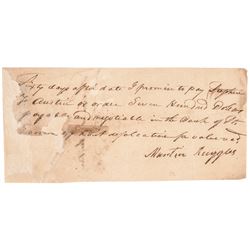 Sixty days after date I promise to pay Stephen
F. Austin or order Seven Hundred Dollars
payable and negotiable in the Bank of
without defalcation for value rec
Martin Ruggles